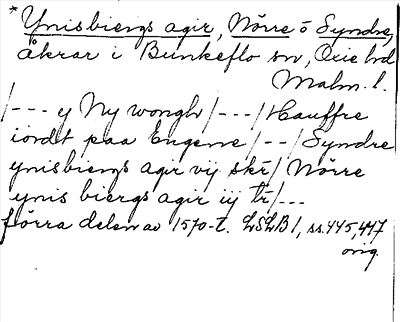 *Ynisbiergs agir, Nörre o Syndre,
åkrar i Bunkeflo sn, Oxie hd
Malm. l.
/--- y Ny wongh /---/ Hauffre
iordt paa Engerne /--/ Syndre
ynisbiergs agir vij skr / Nörre
ynis biergs agir iij tr /---
förra delen av 1570-t. LSLB 1, ss. 445, 447
orig.